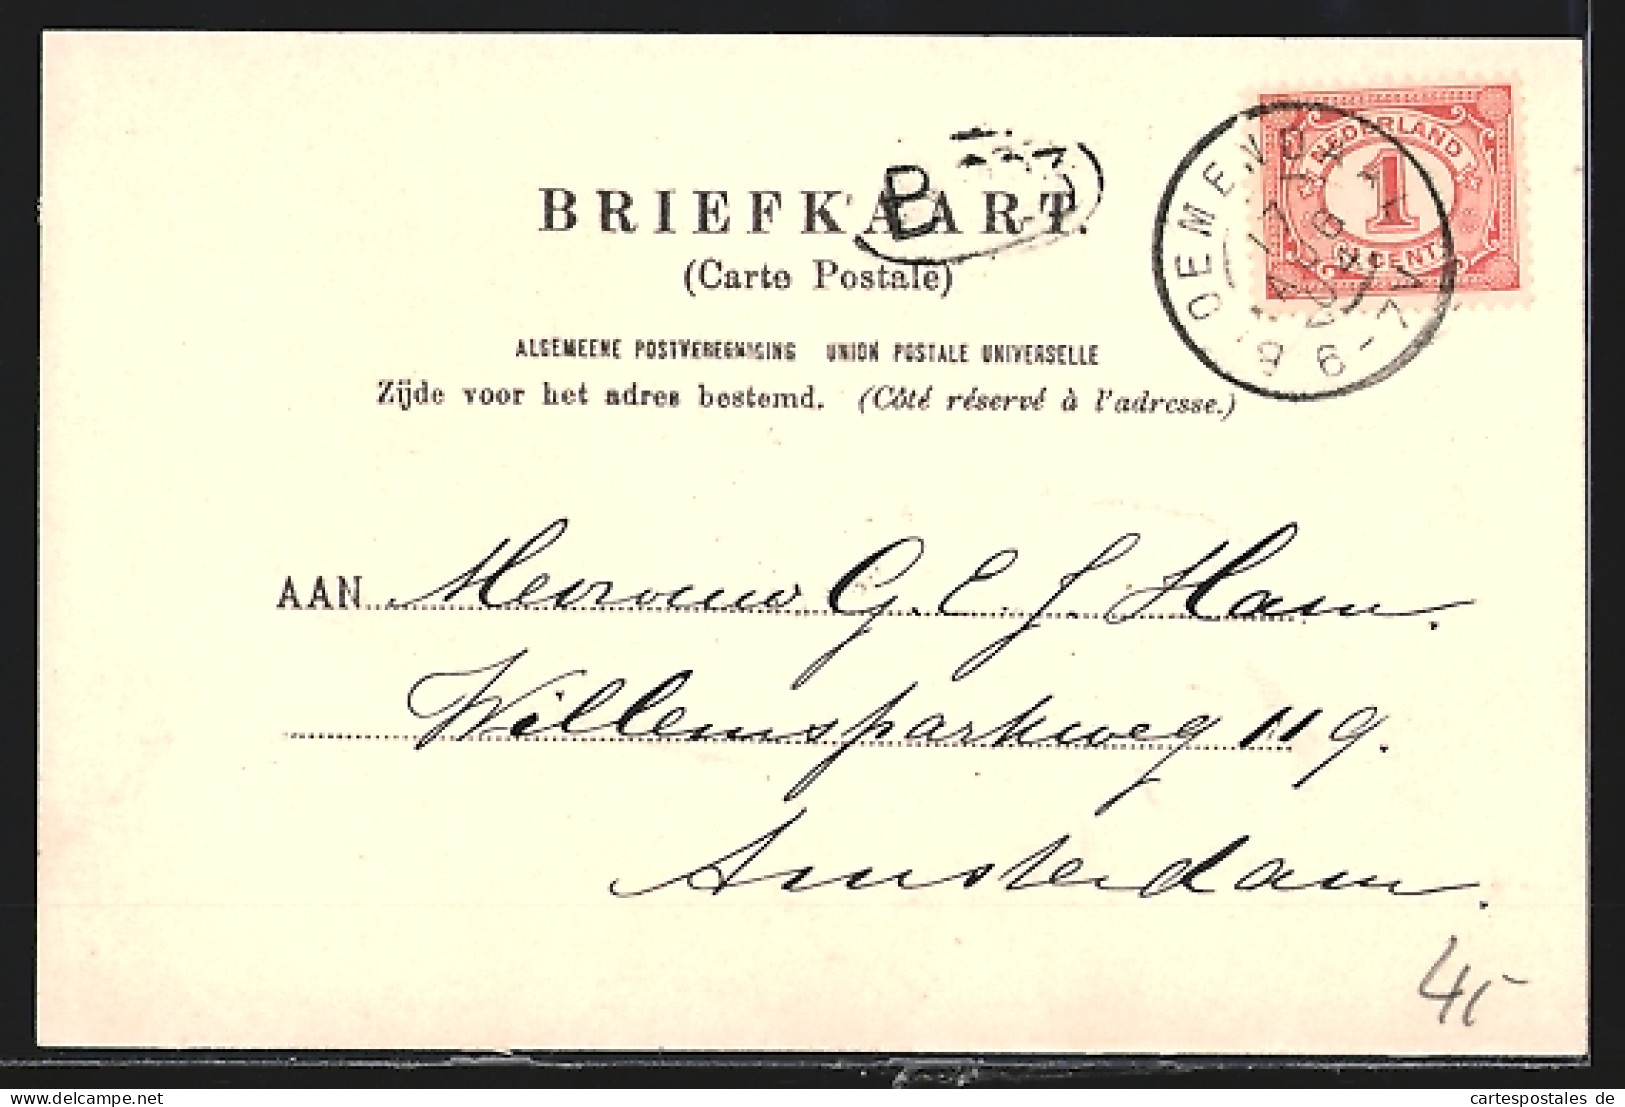 BRIEFKAART.
(Carte Postale)
ALGEMEENE POSTVEREENIGING UNION POSTALE UNIVERSELLE
Zijde voor het adres bestemd. (Côté réservé à l'adresse.)
NEDERLAND
1
CENT
6-7V
B
AAN Mevrouw G. C. J. Ham.
Willemsparkweg 119.
Amsterdam.
45
www.delcampe.net
cartespostales de